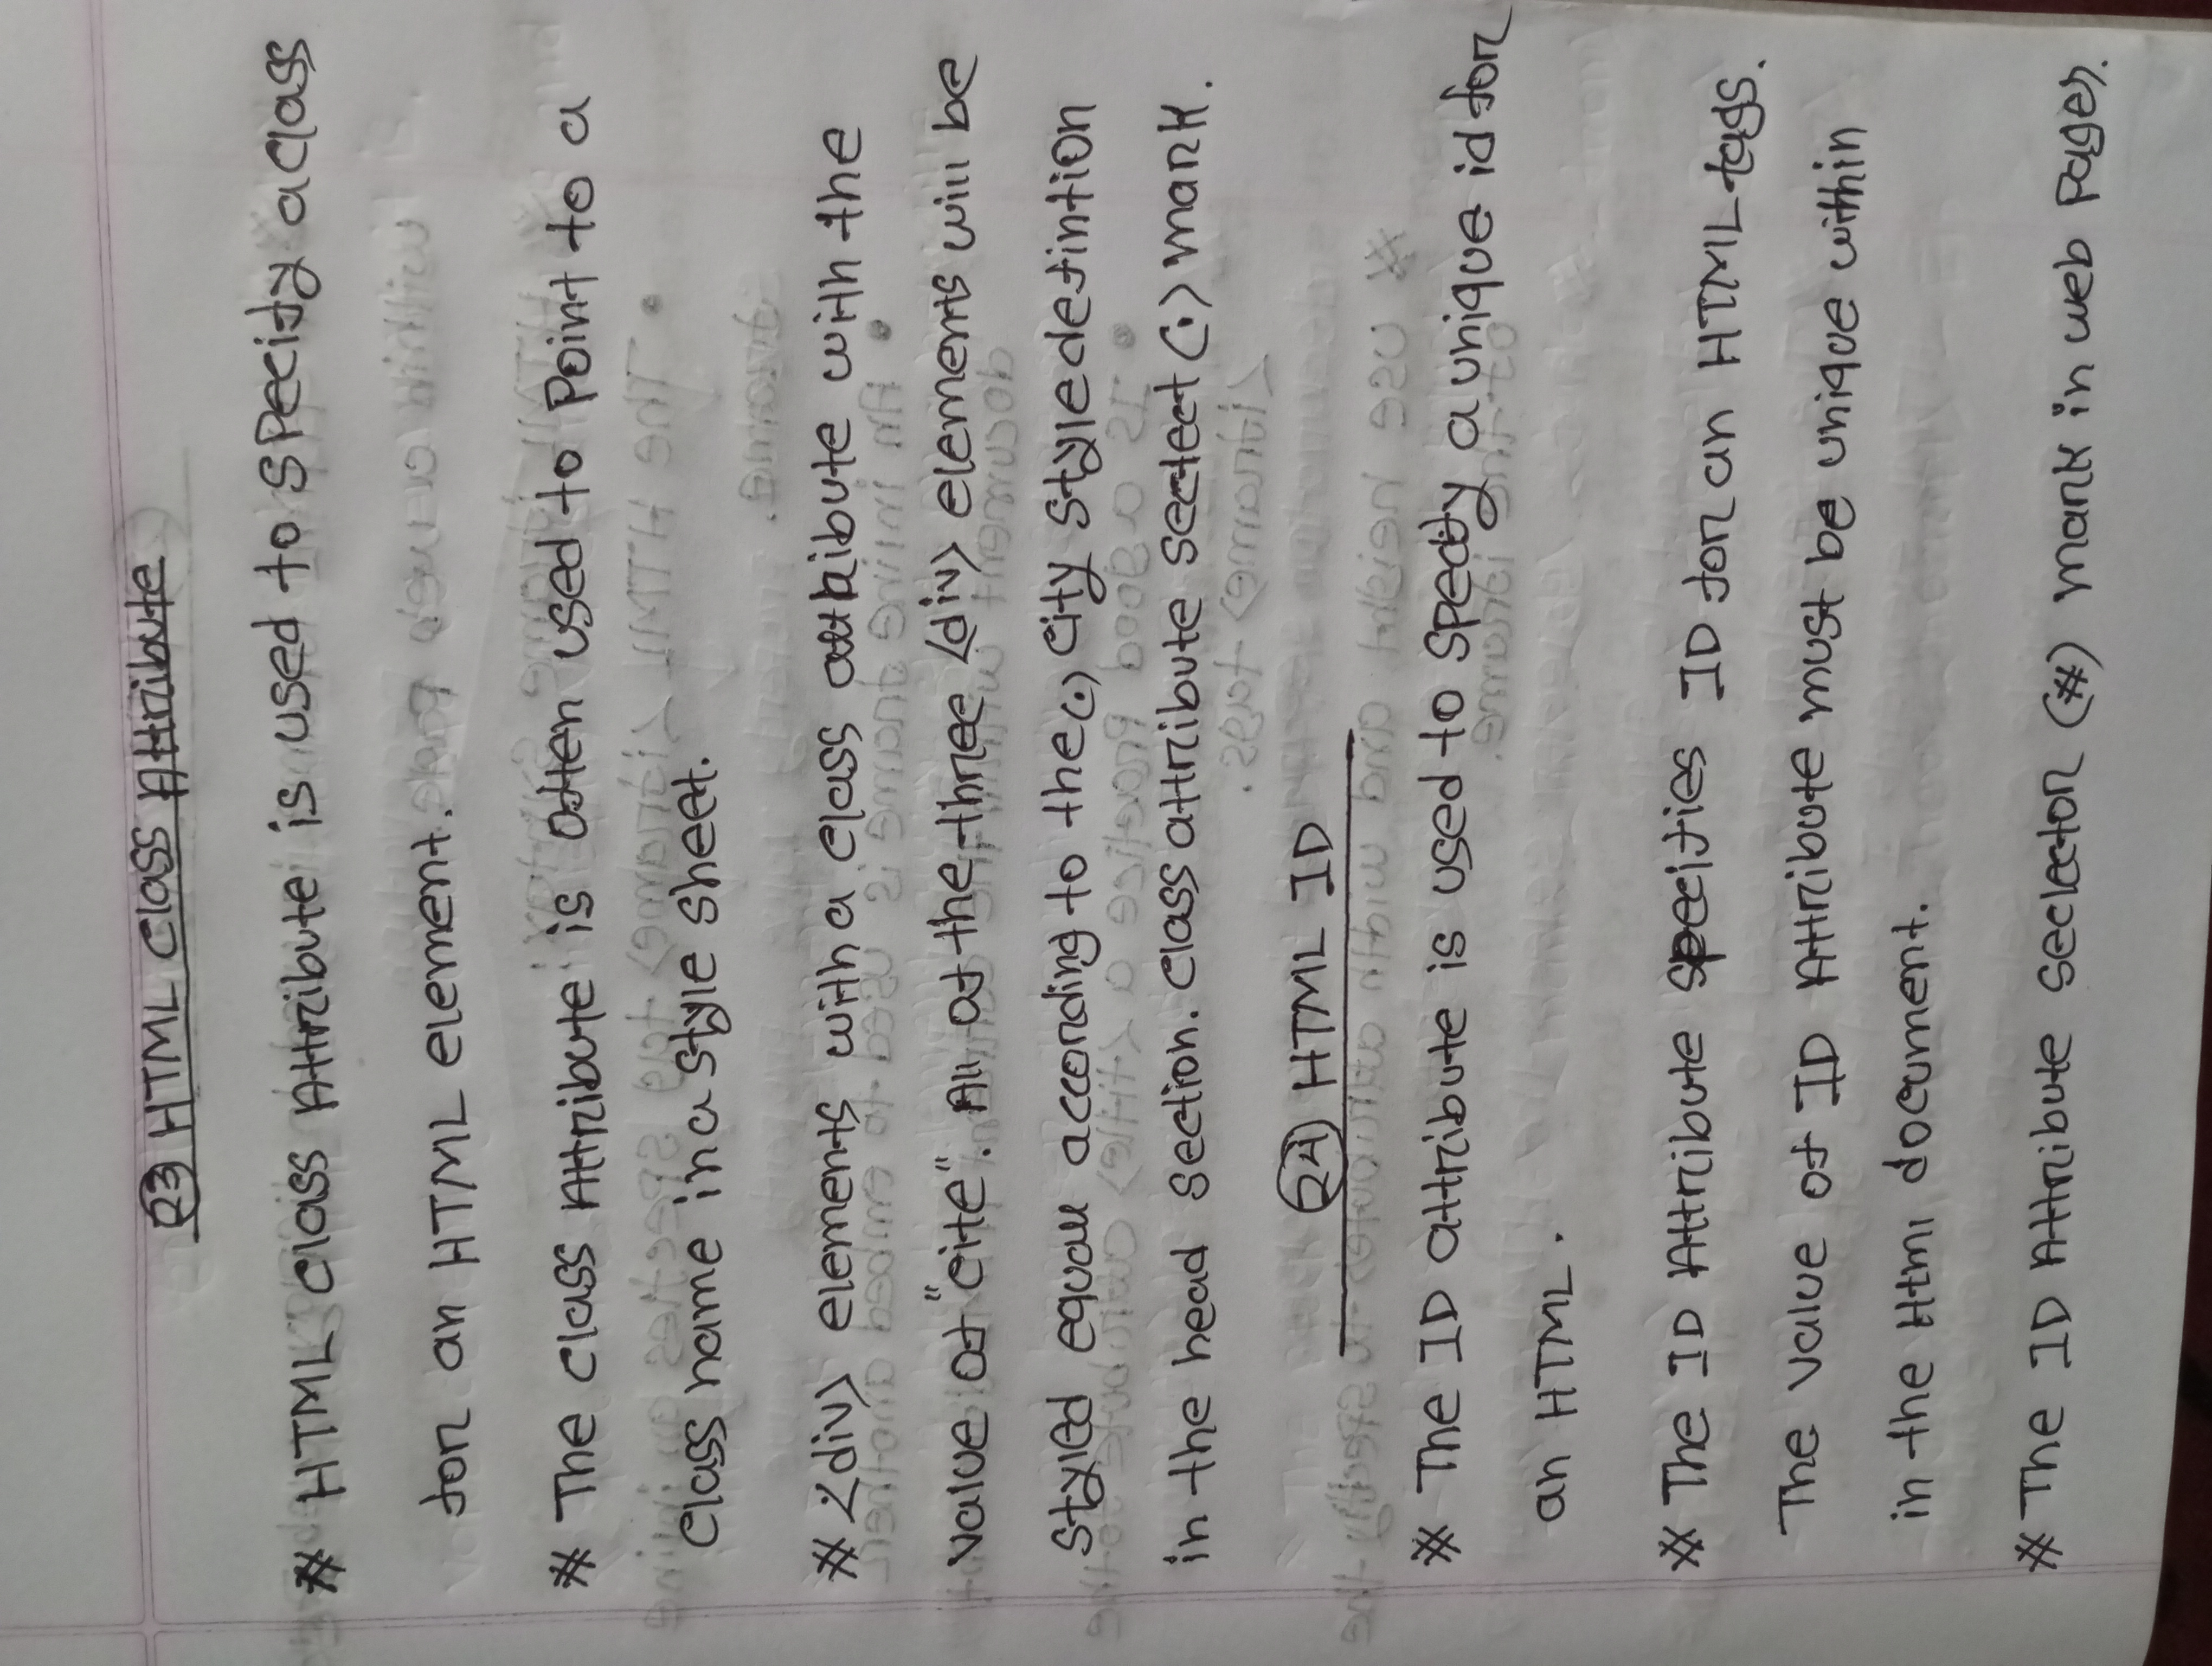 23 HTML Class Attribute
# HTML Class Attribute is used to specify a class
for an HTML element.
# The Class Attribute is often used to Point to a
Class name in a style sheet.
# <div> elements with a class attribute with the
value of "cite". All of the three <div> elements will be
styled equall according to the (.) city style defintion
in the head section. Class attribute sectect (.) mark.
24 HTML ID
# The ID attribute is used to specify a unique id for
an HTML.
# The ID Attribute specifies ID for an HTML tags.
The value of ID Attribute must be unique within
in the Html document.
# The ID Attribute seclector (#) mark in web Pages.